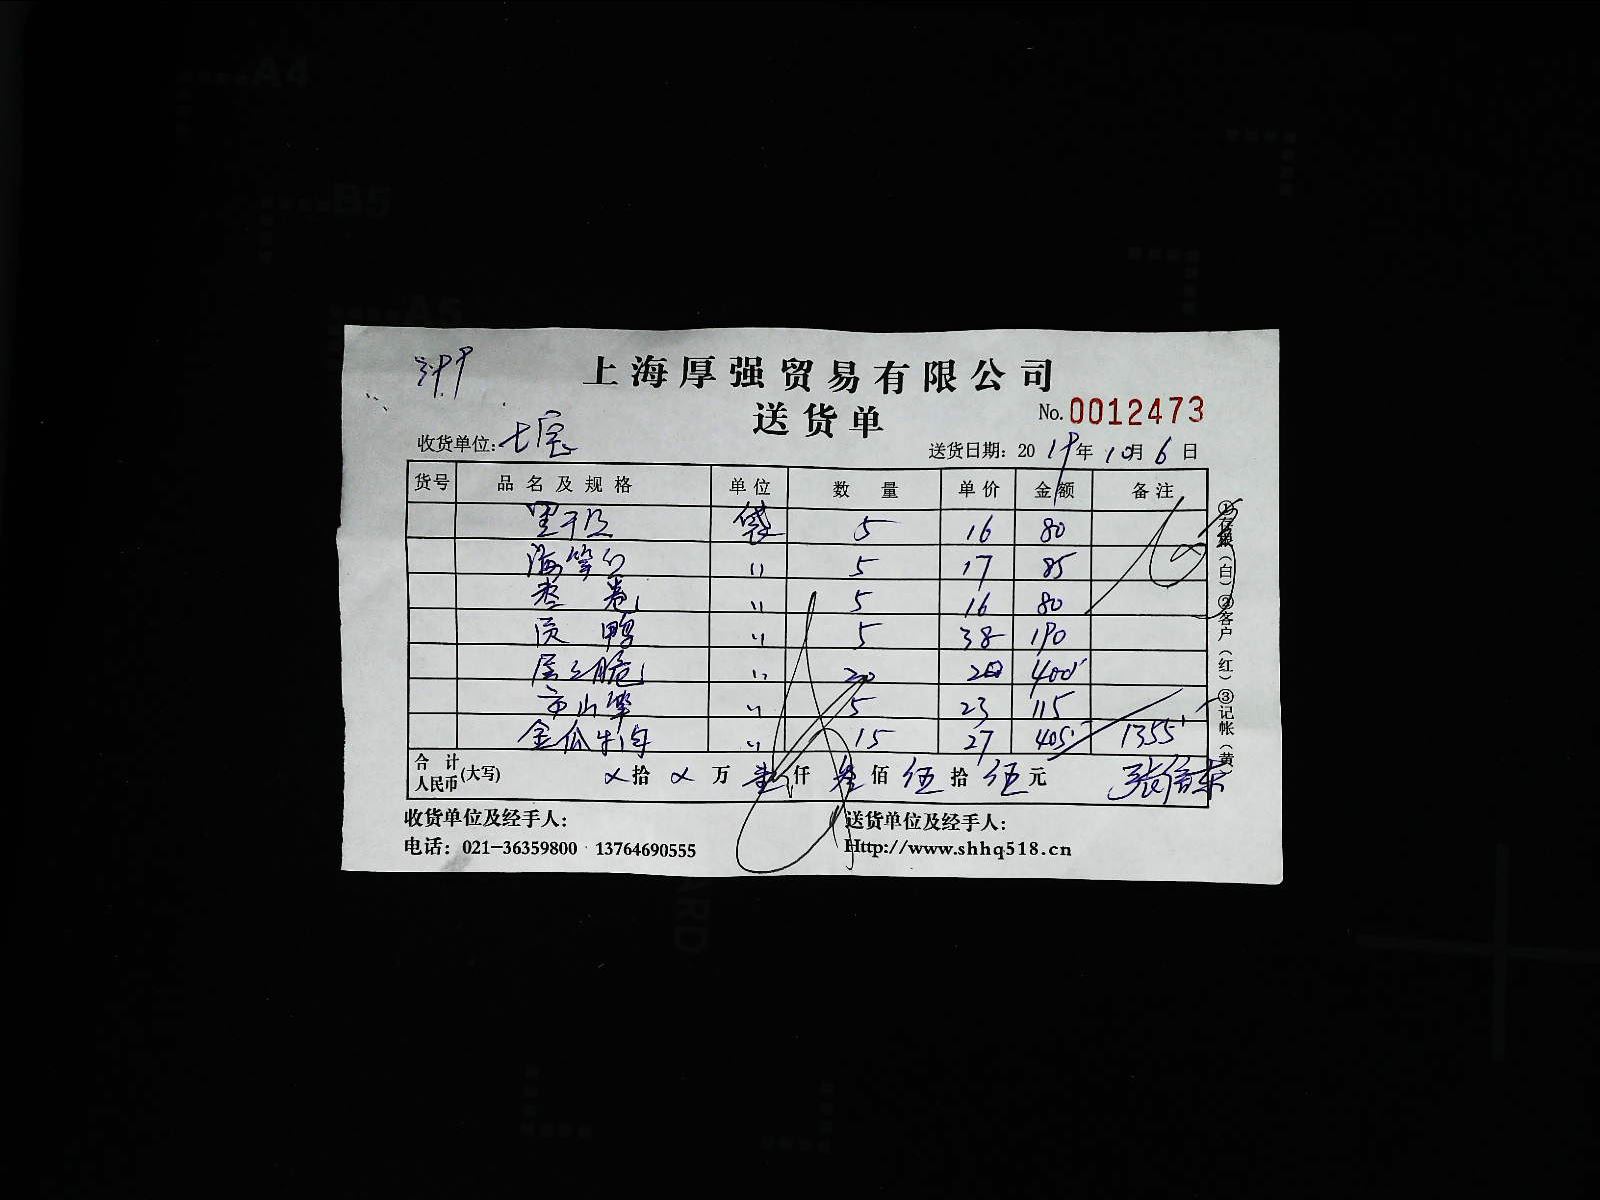 上海厚强贸易有限公司
送货单
No. 0012473
收货单位: 七宝
送货日期: 2019年10月6日
货号 品名及规格 单位 数量 单价 金额 备注
袋 5 16 80
海笋幻 〃 5 17 85
枣卷 〃 5 16 80
鸭 〃 5 38 190
脆 〃 20 20 400
〃 5 23 115
金瓜牛肉 〃 15 27 405 1355
合计人民币(大写) ×拾×万壹仟叁佰伍拾伍元
收货单位及经手人:
送货单位及经手人:
电话: 021-36359800 13764690555
Http://www.shhq518.cn
①存根(白)②客户(红)③记帐(黄)